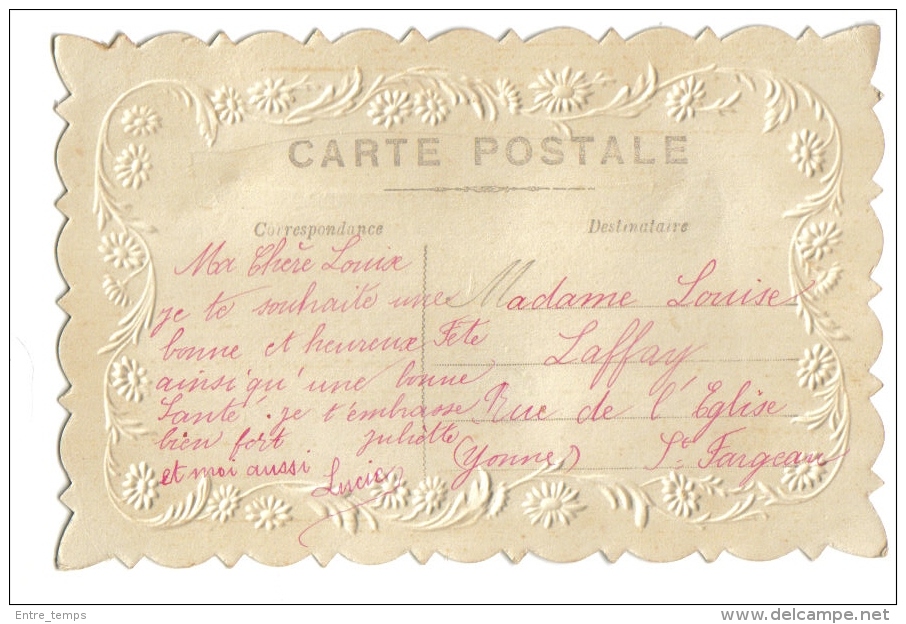 CARTE POSTALE
Correspondance
Ma Chère Louise
je te souhaite une
bonne et heureux Fête
ainsi qu'une bonne
Santé. je t'embrasse
bien fort Juliette
et moi aussi Lucie
Destinataire
Madame Louise
Laffay
Rue de l'Eglise
(Yonne) St Fargeau
Entre_temps
www.delcampe.net